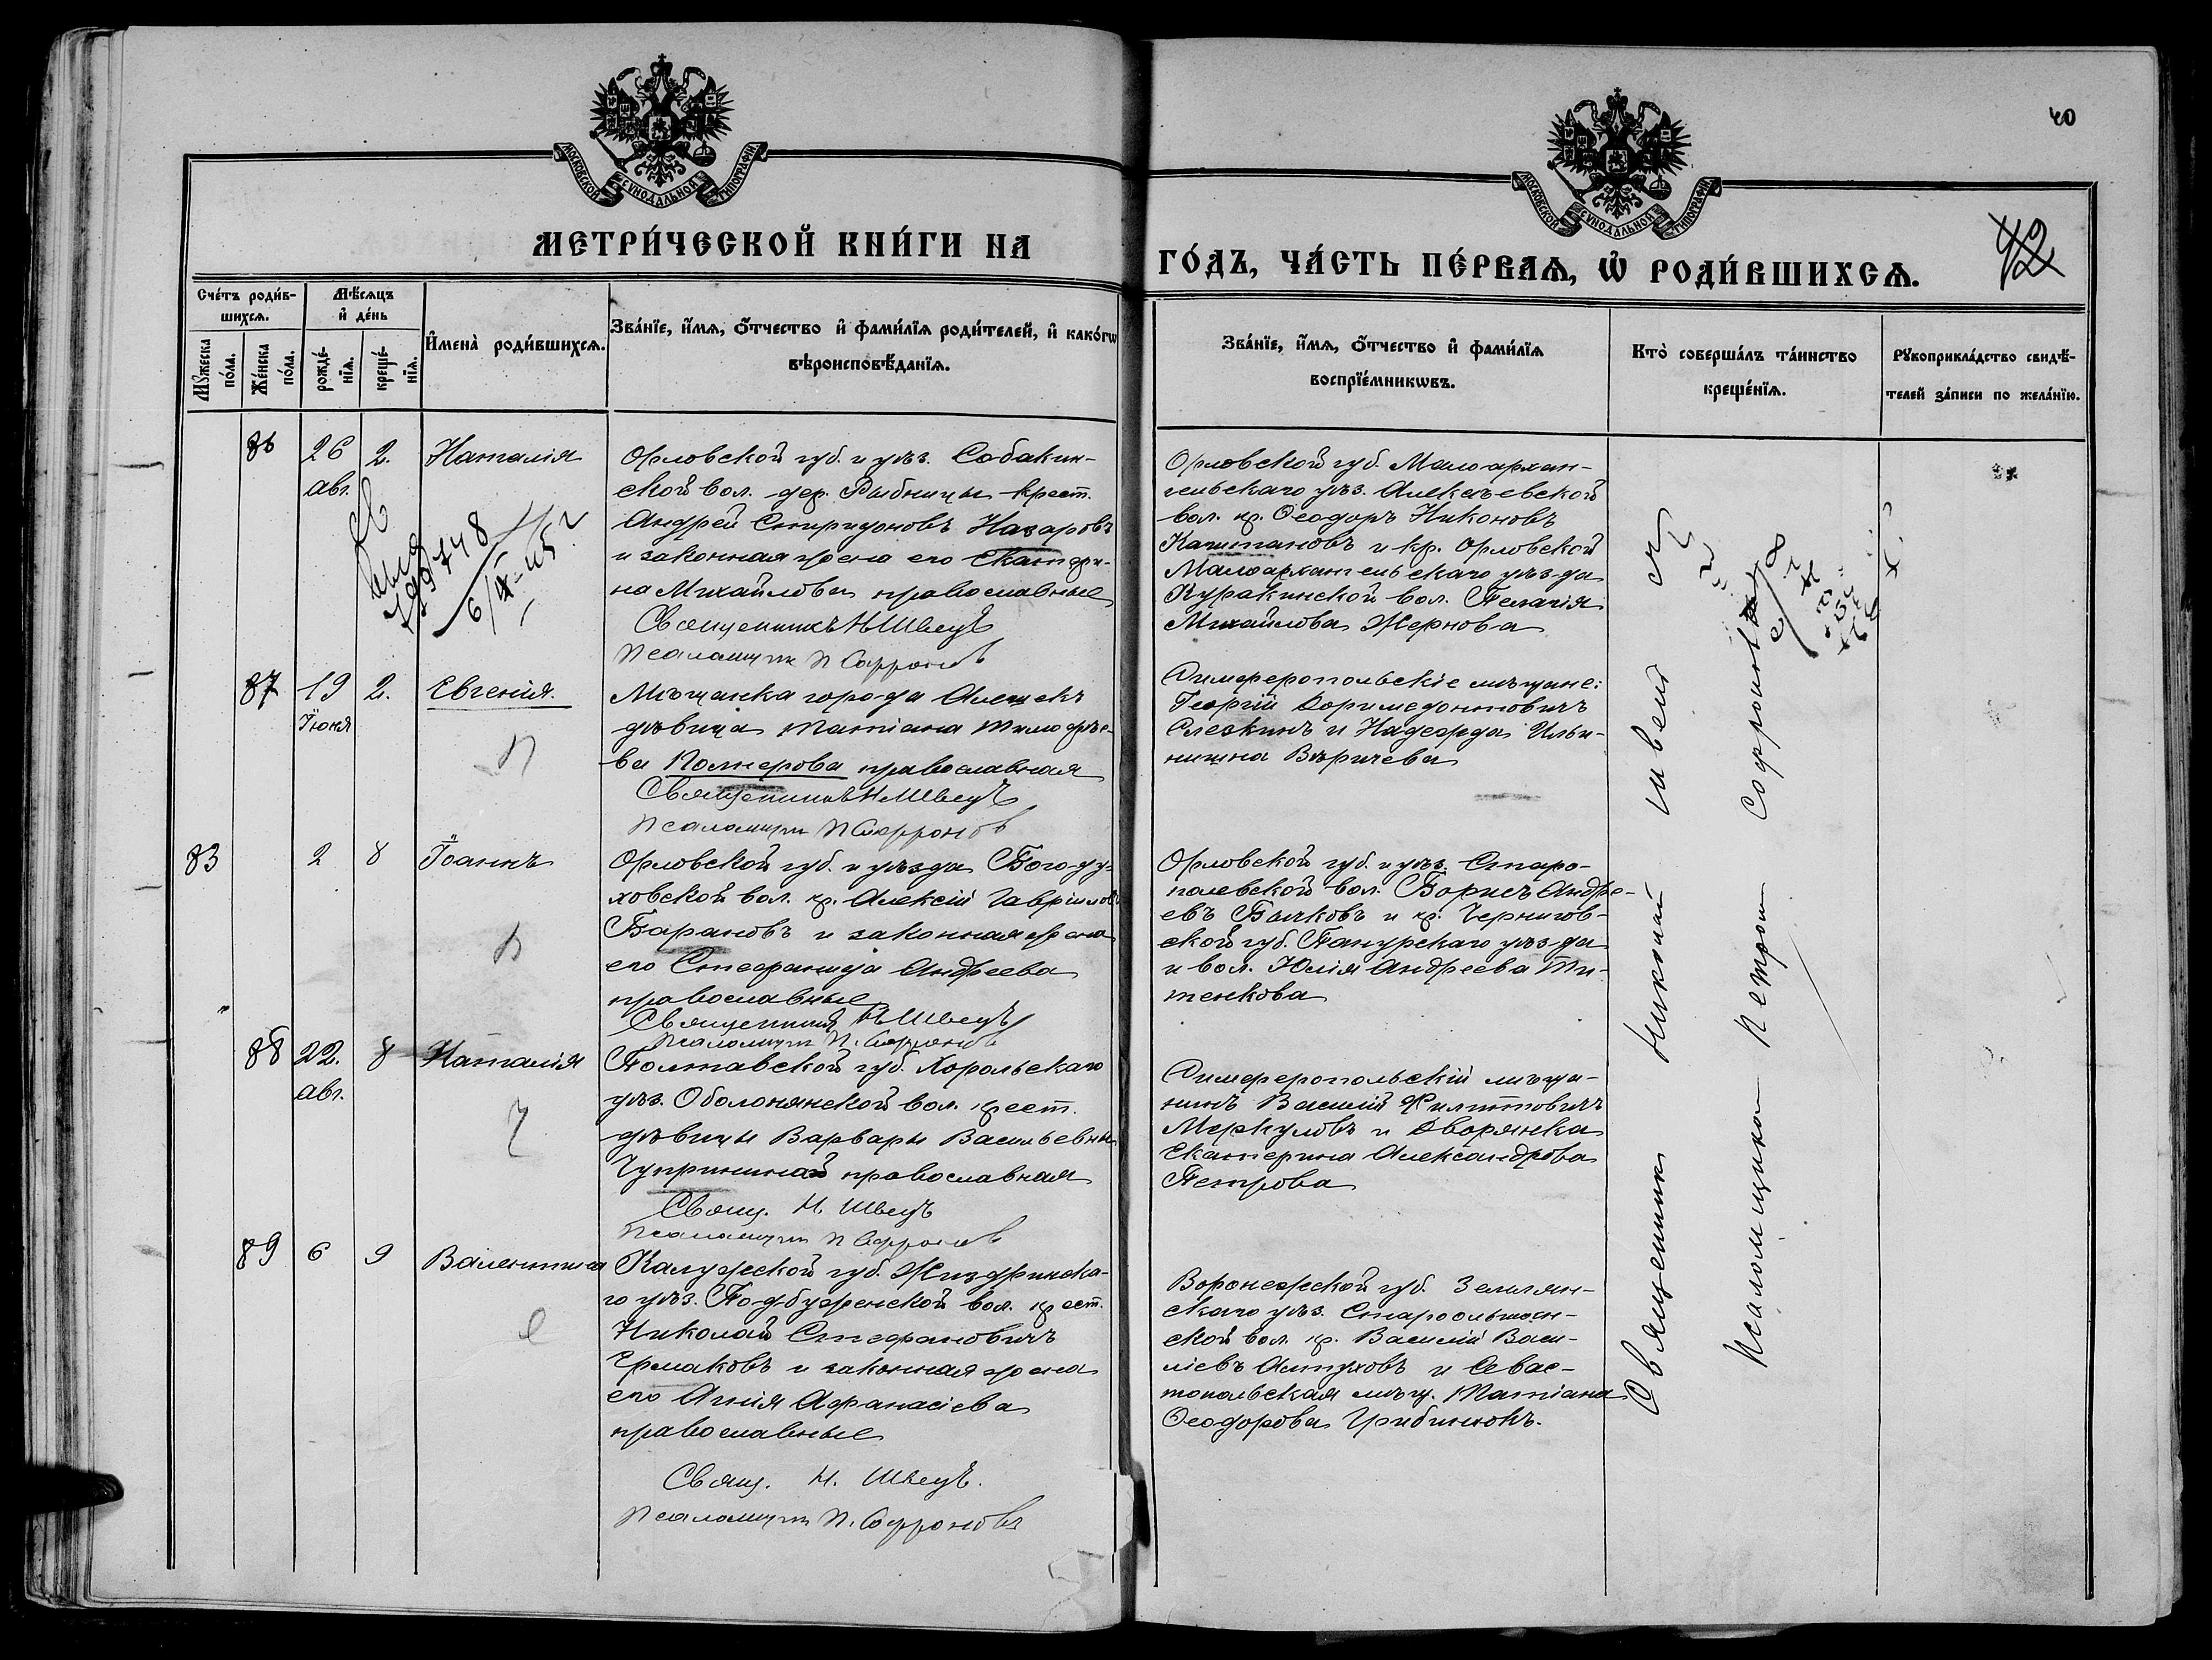 40
42
МОСКОВСКОЙ СѴНОДАЛЬНОЙ ТИПОГРАФІИ
МОСКОВСКОЙ СѴНОДАЛЬНОЙ ТИПОГРАФІИ
МЕТРИ́ЧЕСКОЙ КНИ́ГИ НА
ГО́ДЪ, ЧА́СТЬ ПЕ́РВАѦ, Ѡ҆ РОДИ́ВШИХСѦ.
Сче́тъ роди́в-
шихсѧ.
Мꙋ́жеска по́ла.
Же́нска по́ла.
Мѣ́сѧцъ
и҆ де́нь
рожде́-
нїѧ.
креще́-
нїѧ.
И҆мена̀ роди́вшихсѧ.
Зва́нїе, и҆́мѧ, ѻ҆́тчество и҆ фами́лїѧ роди́телей, и҆ како́гѡ
вѣроисповѣ́данїѧ.
Зва́нїе, и҆́мѧ, ѻ҆́тчество и҆ фами́лїѧ
воспрїе́мникѡвъ.
Кто̀ соверша́лъ та́инство
креще́нїѧ.
Рꙋкоприкла́дство свидѣ́-
телей за́писи по жела́нїю.
86
26
авг.
2.
Наталія
Орловской губ. и уѣз. Собакин-
ской вол. дер. Рыбницы крест.
Андрей Спиридоновъ Назаровъ
и законная жена его Екатери-
на Михайлова православные
Священникъ Н Швецъ
Псаломщик П Софронов
Орловской губ. Малоархан-
гельскаго уѣз. Алексѣевской
вол. кр. Ѳеодоръ Никоновъ
Каштановъ и кр. Орловской
Малоархангельскаго уѣзда
Куракинской вол. Пелагія
Михайлова Жернова
87
19
Іюня
2.
Евгенія.
Мѣщанка города Алешекъ
дѣвица Татіана Тимофѣе-
ва Полнерова православная
Священникъ Н Швецъ
Псаломщик П Софронов
Симферопольскіе мѣщане:
Георгій Доримедонтовичъ
Слезкинъ и Надежда Ильи-
нишна Вѣричева
83
2
8
Іоаннъ
Орловской губ. и уѣзда Богоду-
ховской вол. кр. Алексій Гавріиловъ
Барановъ и законная жена
его Стефанида Андреева
православные
Священникъ Н Швецъ
Псаломщик П. Софронов
Орловской губ. и уѣз. Старо-
полевской вол. Борисъ Андре-
евъ Бычковъ и кр. Чернигов-
ской губ. уѣзда
и вол. Юлія Андреева Ти-
тенкова
88
22.
авг.
8
Наталія
Полтавской губ. Хорольскаго
уѣз. Оболонянской вол. крест.
дѣвицы Варвары Васильевны
Чуприниной православная
Свящ. Н. Швецъ
Псаломщик П Софронов
Симферопольскій мѣща-
нинъ Василій Филипповичъ
Меркуловъ и дворянка
Екатерина Александрова
Петрова
89
6
9
Валентина
Калужской губ. Жиздринска-
го уѣз. Подбуженской вол. крест.
Николай Стефановичъ
Ермаковъ и законная жена
его Агнія Афанасіева
православные
Свящ. Н. Швецъ.
Псаломщик П. Софроновъ
Воронежской губ. Землян-
скаго уѣз. Староольшан-
ской вол. кр. Василій Васи-
ліевъ Алтуховъ и Севас-
топольская мѣщ. Татіана
Ѳеодорова Грибинюкъ.
Священник Николай Швец
Псаломщик Петр Софронов